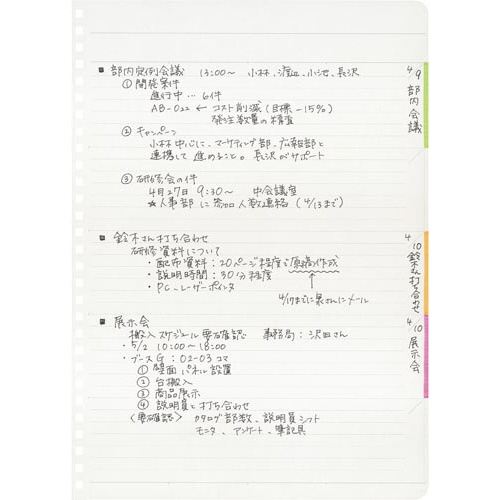 ■ 部内定例会議 13:00～ 小林、渡辺、小池、長沢
① 開発案件
進行中… 6件
AB-022 ← コスト削減(目標-15%)
発注数量の精査
② キャンペーン
小林中心に、マーケティング部、広報部と
連携して進めること。長沢がサポート
③ 研修会の件
4月27日 9:30～ 中会議室
★人事部に参加人数連絡(4/13まで)
4/9 部内会議
■ 鈴木さん打ち合わせ
研修資料について
・配布資料:20ページ程度で原稿作成
・説明時間:30分程度
・PC、レーザーポインタ
4/17までに泉さんにメール
4/10 鈴木さん打ち合わせ
■ 展示会
搬入スケジュール要確認 事務局:沢田さん
・5/2 10:00～18:00
・ブースG:02-03コマ
① 壁面パネル設置
② 台搬入
③ 商品展示
④ 説明員と打ち合わせ
〈要確認〉 カタログ部数、説明員シフト
モニタ、アンケート、筆記具
4/10 展示会